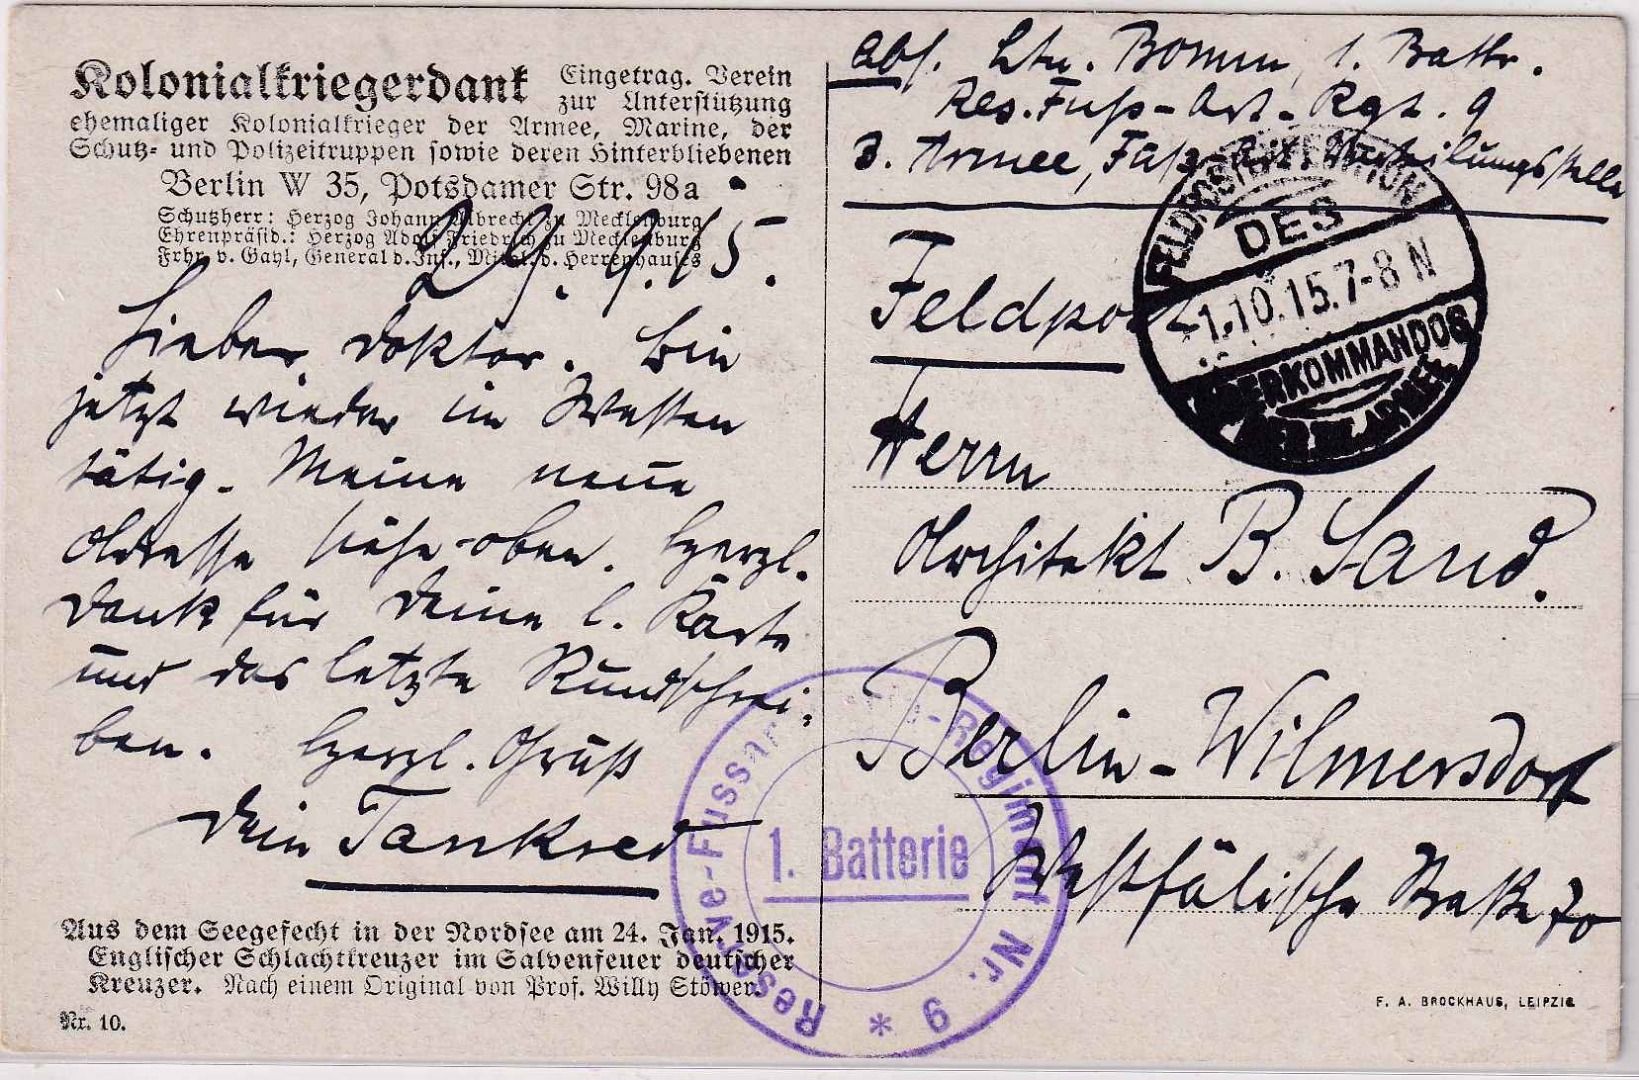 Kolonialkriegerdank Eingetrag. Verein
zur Unterstützung
ehemaliger Kolonialkrieger der Armee, Marine, der
Schutz- und Polizeitruppen sowie deren Hinterbliebenen
Berlin W 35, Potsdamer Str. 98a
Schutzherr: Herzog Johann Albrecht zu Mecklenburg
Ehrenpräsid.: Herzog Adolf Friedrich zu Mecklenburg
Frhr. v. Gayl, General d. Inf., Mitgl. d. Herrenhauses
29. 9. 15.
Lieber Doktor. Bin
jetzt wieder im Westen
tätig. Meine neue
Adresse siehe oben. Herzl.
Dank für Deine l. Karte
und das letzte Rundschrei-
ben. Herzl. Gruß
Dein Tankred
Aus dem Seegefecht in der Nordsee am 24. Jan. 1915.
Englischer Schlachtkreuzer im Salvenfeuer deutscher
Kreuzer. Nach einem Original von Prof. Willy Stöwer.
Nr. 10.
Abs. Ltn. Bomm, 1. Battr.
Res. Fuß-Art-Rgt. 9
3. Armee, Fuß-Art. Verteilungsstelle
Feldpost
FELDPOSTEXPEDITION
DES
-1.10.15.7-8 N
OBERKOMMANDOS
DER III. ARMEE
Herrn
Architekt B. Sand.
Berlin-Wilmersdorf
Westfälische Straße 70
Reserve-Fussart.-Regiment Nr. 9 *
1. Batterie
F. A. BROCKHAUS, LEIPZIG